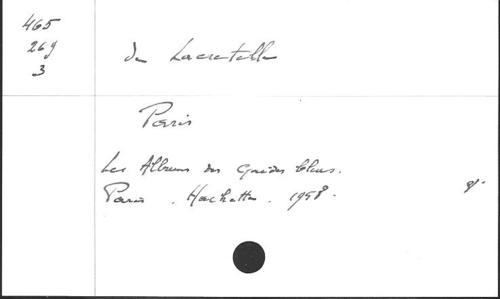 465
269
3
de Lacretelle
Paris
Les Albums des Guides bleus.
Paris. Hachette. 1958.